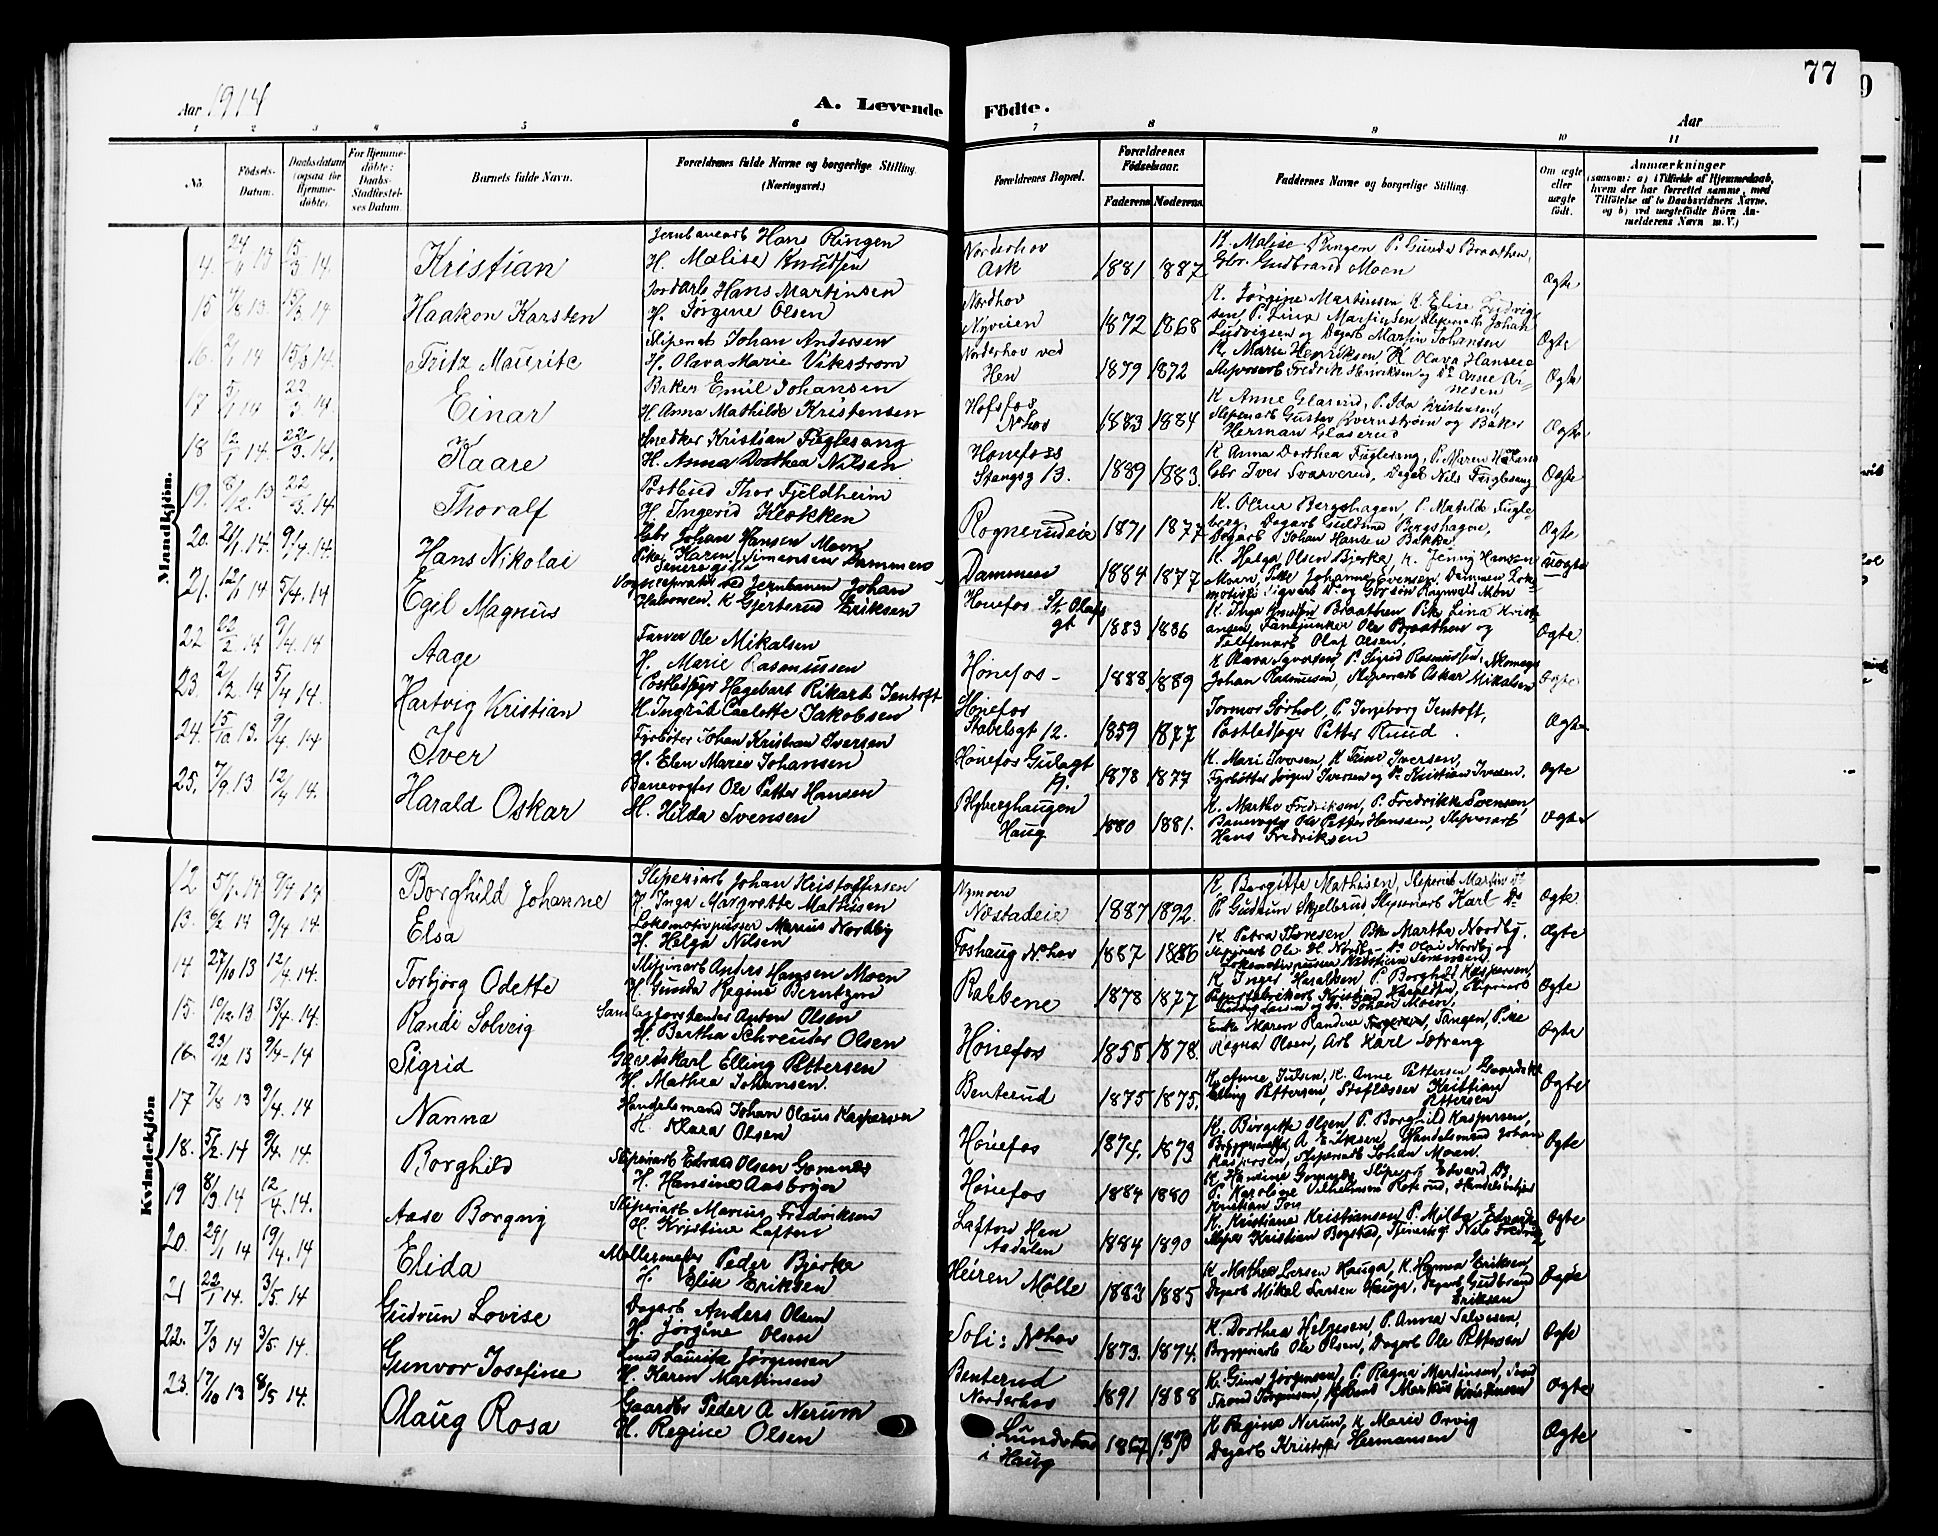 77
Aar 1914
A. Levende Födte.
Aar
1 2 3 4 5 6 7 8 9 10 11
No.
Födsels-Datum.
Daabsdatum (ogsaa for Hjemme-døbte).
For Hjemme-döbte: Daabs-Stadfæstel-ses Datum.
Barnets fulde Navn.
Forældrenes fulde Navne og borgerlige Stilling. (Næringsvei.)
Forældrenes Bopæl.
Forældrenes Födselsaar.
Faderens Moderens
Faddernes Navne og borgerlige Stilling.
Om ægte eller uægte födt.
Anmærkninger
(saasom: a) i Tilfælde af Hjemmedaab, hvem der har forrettet samme, med Tilföielse af to Daabsvidners Navne, og b) ved uægtefödte Börn An-melderens Navn m. V.)
Mandkjön.
4. 13 15/3 14. Kristian
Jernbanearb Hans Ringen
H. Malise Knudsen
Norderhov Ask 1881 1887
K. Malise Ringen P. Gunda Braathen,
Gbr. Gudbrand Moen
Ægte
15 13 15/3 14 Haakon Karsten
Jordarb Hans Martinsen
H. Jörgine Olsen
Nordhov Nyveien 1872 1868
K. Jörgine Martinsen, K. Elise Ludvig-
sen P. Lina Martinsen, Slipearb Johan
Ludvigsen og Dagarb Martin Johansen
Ægte
16. 2/1 14 15/3 14. Fritz Mauritz
Slipearb Johan Andersen
H. Olava Marie Vikstrøm
Norderhov ved Hen 1879 1872
K. Marie Henriksen, K Olava Hansen
Slipearb Fredrik Henriksen og Do Arne Ar-
nesen
Ægte
17 5/1 14 22/3 14. Einar
Baker Emil Johansen
H. Anna Mathilde Kristensen
Hofsfos Nhov 1883 1884
K Anne Glaserud, P. Ida Kristensen,
Slipearb Gustav Kvernstrøm og Baker
Herman Glaserud
Ægte
18 12/1 14. 22/3 14. Kaare
Snedker Kristian Fuglesang
H. Anna Dorthea Nilsen
Honefoss Stangsg 13. 1889 1883.
K Anna Dorthea Fuglesang, P. Maren
Gbr Iver Svarverud, Dagab Nils Fuglesang
Ægte
19. 8/12 13 22/3 14. Thoralf
Postbud Thor Fjeldheim
H. Ingerid Klokken
Rognerudeie 1871 1877
K. Oline Bergshagen, P. Matilde Fugle-
berg, Dagarb Guldmund Bergshagen,
Dagarb Johan Hansen Bakke
Ægte
20. 21/1 14. 9/4 14. Hans Nikolai
Gbr Johan Hansen Moen
Pike Karen Simensen Dammen
Senere gifte
Dammen 1884 1877
K. Helga Olsen Bjerke, K. Jenny Hansen
Moen, Pike Johanne Evensen Dammen, Loko-
motivf Sigvart Do og Gbrsøn Ragnvald Moen
uægte
21. 12/1 14 5/4. 14 Egil Magnus
Vognreparatør ved Jernbanen Johan
Halvorsen. K Gjertrud Eriksen
Hønefos St. Olafs gt 1883 1886
K. Inga Knudsen Braathen Pike Lina Kristi-
ansen, Fanejunker Ole Braathen og
Telefonarb Olaf Olsen
Ægte
22 22/2 14 9/4 14 Aage
Farver Ole Mikalsen
H. Marie Rasmussen
Hønefos- 1888 1889
K Olava Syversen, P. Sigrid Rasmussen, Skomager
Johan Rasmussen, Slipearb Oskar Mikalsen
Ægte
23. 2/2 14 5/4 14. Hartvig Kristian
Postledsager Hagebart Rikart Jentoft
H. Ingrid Carlotte Jakobsen
Hønefos Stabelsgt 12. 1859 1877
Tormor Sørhol, P. Ingeborg Jentoft,
Postledsager Petter Ruud.
Ægte
24. 15/10 13. 9/4 14 Iver
Fyrbøter Johan Kristian Iversen
H. Elen Marie Johansen
Hønefos Gulagt 1878 1877
K. Mari Iversen, K Trine Iversen,
Fyrbøtter Jørgen Iversen og Do Kristian Iversen.
Ægte
25. 7/9 13 12/4 14. Harald Oskar
Banevogter Ole Petter Hansen
H. Hilda Svensen
Blybærghaugen Haug 1880 1881.
K. Marthe Fredriksen, P. Fredrikke Svensen,
Banevogter Ole Petter Hansen, Slipearb
Hans Fredriksen
Ægte
Kvindekjön
12 5/1 14 9/4 14 Borghild Johanne
Sliperiarb Johan Kristoffersen
H. Inga Margrette Mathisen
Nymoen Næstadeie 1887 1892.
K Borgitte Mathisen, Sliperiab Martin Do
P. Gudrun Skjelbred, Sliperiarb Karl Do
Ægte
13. 6/2 14 9/4 14. Elsa
Lokomotivpusser Marius Nordby
H. Helga Nilsen
Foshaug Nhov 1887 1886
K. Petra Thoresen, Pk Martha Nordby,
Slipearb Ole H. Nordby- Do Olai Nordby og
Lokomotivpusser Kristian Simensen.
Ægte
14 27/10 13 12/4. 14. Torbjørg Odette
Slipearb Anders Hansen Moen
H. Gunda Regine Berntzen
Rabbene 1878 1877
K. Inger Haraldsen, P. Borghild Kaspersen,
Papirfabrikarb Kristian Haraldsen, Sliperiarb
Ludvig Larsen og Do Johan Moen.
Ægte
15. 19/12 13 13/4. 14. Randi Solveig
Samlagforstander Anton Olsen
H. Bertha Schreuder Olsen
Hønefos 1858 1878.
Enke Maren Randine Tangen, Pike
Ragna Olsen, Arb Karl Sørvang
Ægte
16 23/12 13 9/4-14 Sigrid
Gaardskarl Elling Pettersen
H. Mathea Johansen.
Benterud 1875 1875.
K. Anne Julsen, K. Anne Pettersen, Gaardsk
Elling Pettersen, Stoflæsser Kristian
Pettersen
Ægte
17 7/8 13 9/4. 14 Nanna
Handelsmand Johan Olaus Kaspersen
H. Klara Olsen
Hønefos 1874. 1873
K. Birgitte Olsen, P. Borghild Kaspersen,
A. Eriksen, Handelsmnd Johan
Kaspersen, Sliperiarb Johan Moen.
Ægte
18. 5/2. 14 9/4. 14. Borghild
Sliperiarb Edvard Olsen Gomnæs
H. Hansine Aasbryn
Hønefos 1884 1880
K Hansine Gomnæs, Sliperi Edvard Do,
P. Karoline Vilhelmsen Roterud, Handelsbetjent
Kristian
Ægte
19 8/3. 14 12/4. 14. Aase Borgny
Sliperiarb Marius Fredriksen
H. Kristine Lafton
Lafton Hen Aadalen 1884 1890
K. Kristiane Kristiansen, P. Milda Edvards
Sliper Kristian Bogstad, Nils Fredriks
Ægte
20. 29/1 14 19/4. 14 Elida
Møllermester Peder Bjerke
H. Elise Eriksen
Heiren Mølle 1883 1885
K. Mathea Larsen Hauga, K. Hanna Eriksen,
Dagarb Mikal Larsen Hauga, Dagarb Gudbrand
Eriksen
Ægte
21 22/1 14. 3/5. 14 Gudrun Lovise
Dagarb Anders Olsen
H. Jørgine Olsen
Soli: Nhov 1873. 1874.
K. Dorthea Helgesen, P. Anna Salvesen,
Bryggeriarb Ole Olsen, Dagarb Ole Pettersen
Ægte
22. 7/3 14 3/5. 14. Gunvor Josefine
Smed Lauritz Jørgensen
H. Karen Martinsen
Benterud Norderhov 1891 1888
K. Gina Jørgensen, P. Ragna Martinsen, Smed
Trond Jørgensen, Markus Kristensen
Ægte
23. 17/10 13 8/5 14. Olaug Rosa
Gaardbr Peder A Nerum
H. Regine Olsen
Lundstad i Haug 1867 1870
K Regine Nerum, K Marie Orvig
Dagarb Kristoffer Hermansen
Ægte